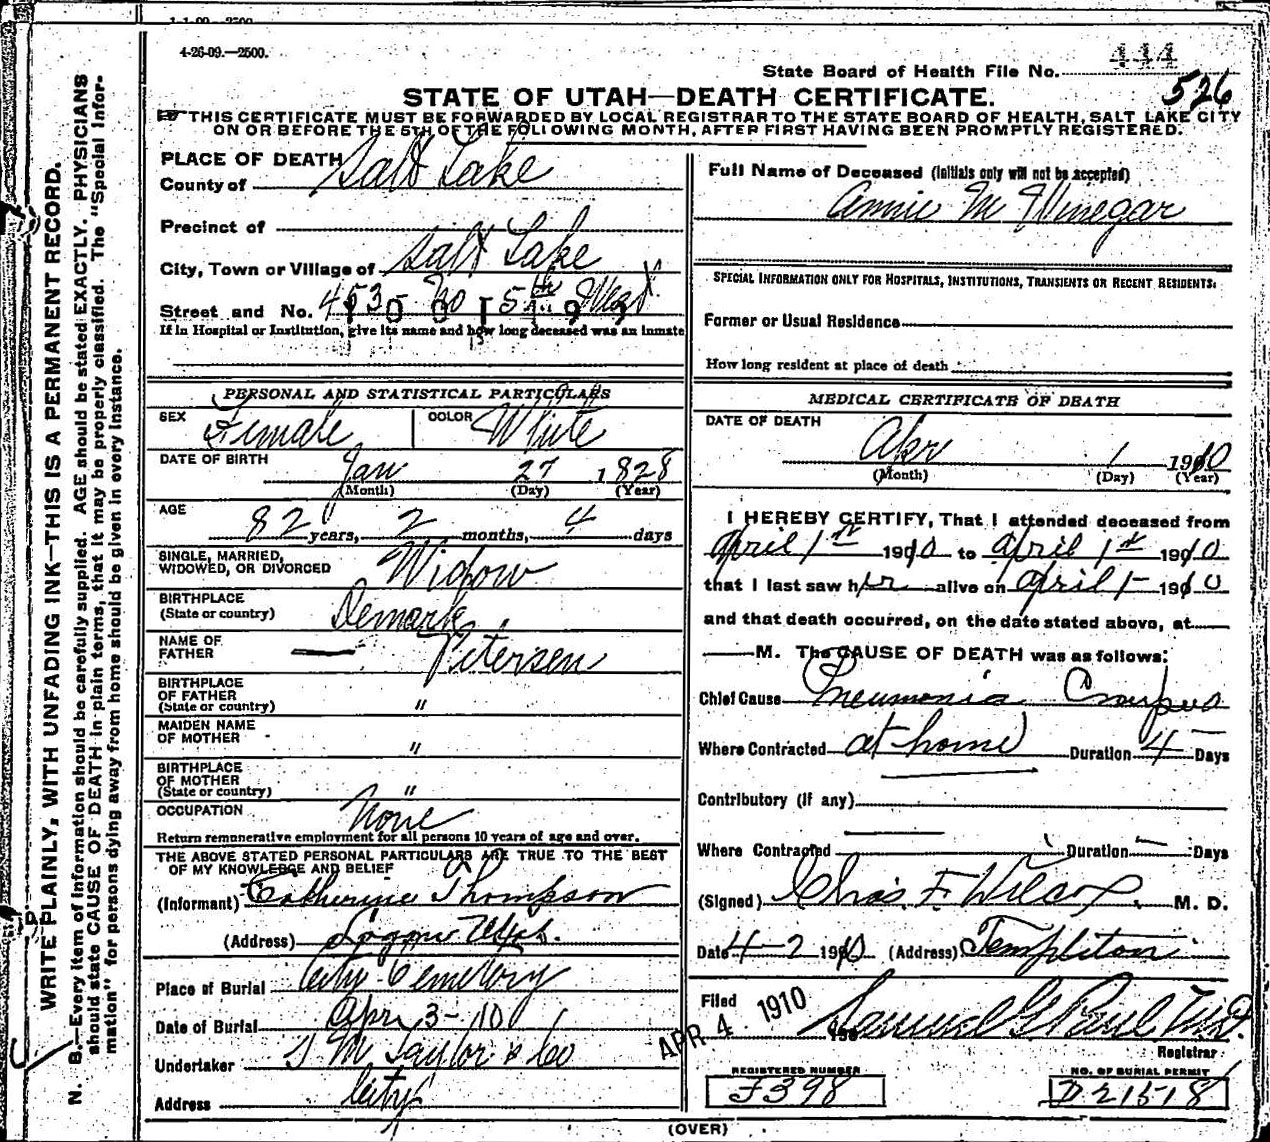 1-1-09—2500
4-26-09.—2500.
444
State Board of Health File No.
526
STATE OF UTAH—DEATH CERTIFICATE.
THIS CERTIFICATE MUST BE FORWARDED BY LOCAL REGISTRAR TO THE STATE BOARD OF HEALTH, SALT LAKE CITY
ON OR BEFORE THE 5TH OF THE FOLLOWING MONTH, AFTER FIRST HAVING BEEN PROMPTLY REGISTERED.
WRITE PLAINLY, WITH UNFADING INK—THIS IS A PERMANENT RECORD.
N. B.—Every item of information should be carefully supplied. AGE should be stated EXACTLY. PHYSICIANS
should state CAUSE OF DEATH in plain terms, that it may be properly classified. The "Special Infor-
mation" for persons dying away from home should be given in every instance.
PLACE OF DEATH
County of Salt Lake
Precinct of
City, Town or Village of Salt Lake
Street and No. 453 No 5th West
If in Hospital or Institution, give its name and how long deceased was an inmate
PERSONAL AND STATISTICAL PARTICULARS
SEX Female COLOR White
DATE OF BIRTH Jan 27 1828
(Month) (Day) (Year)
AGE 82 years, 2 months, 4 days
SINGLE, MARRIED,
WIDOWED, OR DIVORCED Widow
BIRTHPLACE
(State or country) Demark
NAME OF
FATHER — Petersen
BIRTHPLACE
OF FATHER
(State or country) "
MAIDEN NAME
OF MOTHER "
BIRTHPLACE
OF MOTHER
(State or country) "
OCCUPATION None
Return remunerative employment for all persons 10 years of age and over.
THE ABOVE STATED PERSONAL PARTICULARS ARE TRUE TO THE BEST
OF MY KNOWLEDGE AND BELIEF
(Informant) Catherine Thompson
(Address) Logan Utah.
Place of Burial City Cemetery
Date of Burial Apr 3-10
Undertaker S M Taylor & Co
Address City
Full Name of Deceased (Initials only will not be accepted)
Annie M Winegar
SPECIAL INFORMATION ONLY FOR HOSPITALS, INSTITUTIONS, TRANSIENTS OR RECENT RESIDENTS:
Former or Usual Residence
How long resident at place of death
MEDICAL CERTIFICATE OF DEATH
DATE OF DEATH
Apr 1 1910
(Month) (Day) (Year)
I HEREBY CERTIFY, That I attended deceased from
April 1st 1910 to April 1st 1910
that I last saw her alive on April 1- 1910
and that death occurred, on the date stated above, at
— M. The CAUSE OF DEATH was as follows:
Chief Cause Pneumonia Croupus
Where Contracted at home Duration 4 Days
Contributory (if any)
Where Contracted Duration — Days
(Signed) Chas. F. Wilcox M. D.
Date 4-2 1910 (Address) Templeton
Filed APR 4 1910 190 Samuel G Paul M.D.
Registrar
REGISTERED NUMBER
F398
NO. OF BURIAL PERMIT
D21518
(OVER)